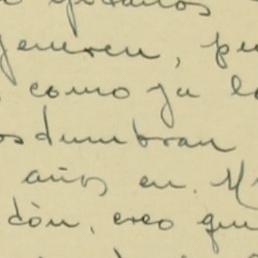 generen, pu
, como ya lo
osdumbran
años en. M
dòn, creo que